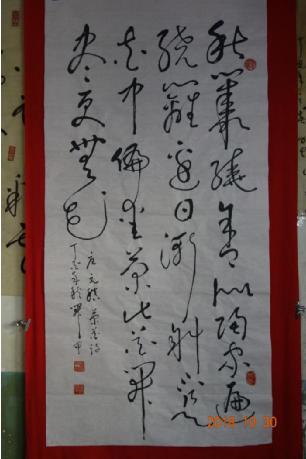 秋叢繞舍似陶家遍
繞籬邊日漸斜不是
花中偏愛菊此花開
盡更無花
唐元稹菊花詩
丁亥年
2018 10 30